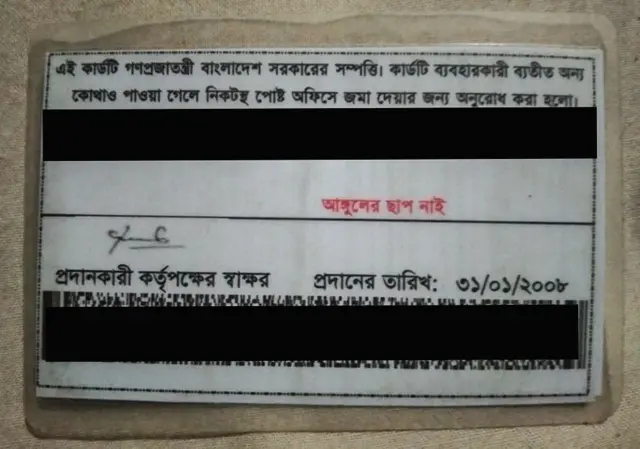 এই কার্ডটি গণপ্রজাতন্ত্রী বাংলাদেশ সরকারের সম্পত্তি। কার্ডটি ব্যবহারকারী ব্যতীত অন্য
কোথাও পাওয়া গেলে নিকটস্থ পোষ্ট অফিসে জমা দেয়ার জন্য অনুরোধ করা হলো।
আঙ্গুলের ছাপ নাই
প্রদানকারী কর্তৃপক্ষের স্বাক্ষর প্রদানের তারিখ: ৩১/০১/২০০৮